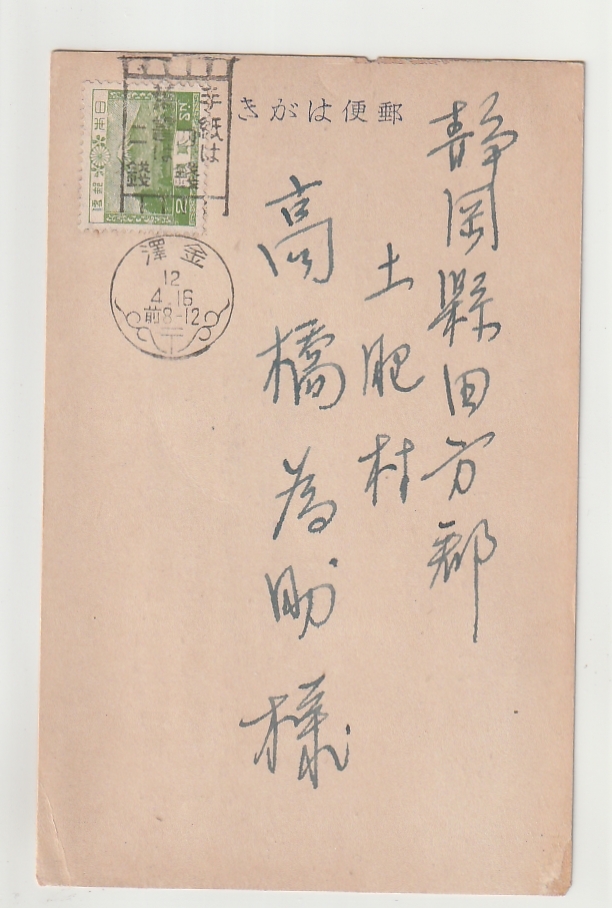 きがは便郵
静岡縣田方郡
土肥村
高橋為助様
手紙は
二錢
澤金
12
4.16
前8-12